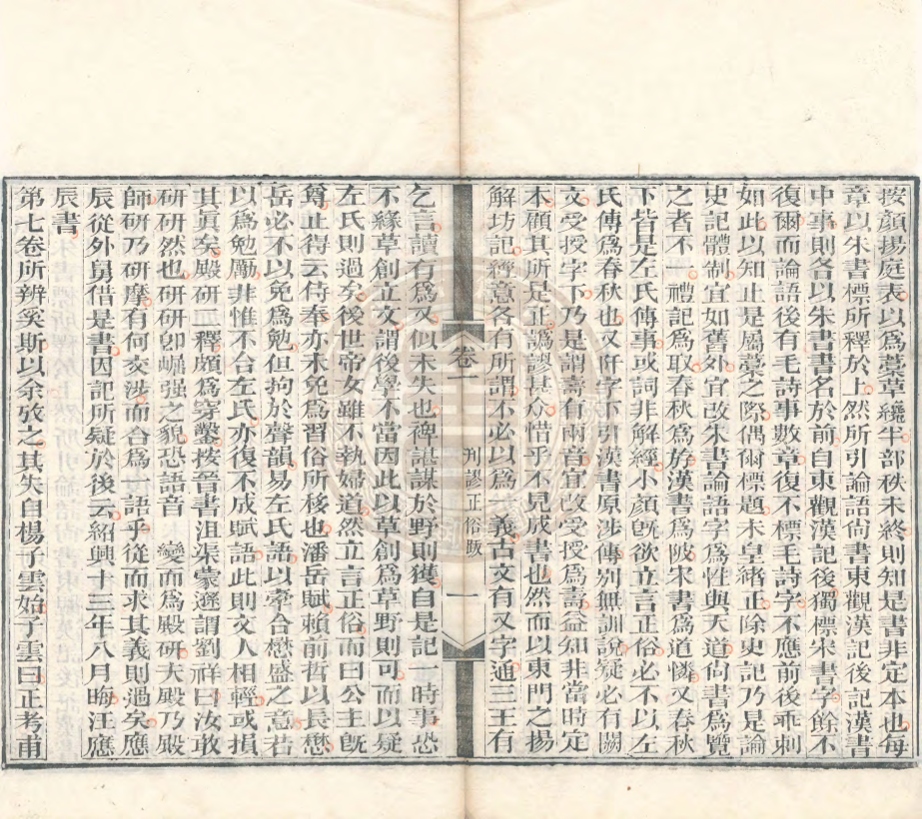 按顏揚庭表以爲藁草纔半部秩未終則知是書非定本也每
章以朱書標所釋於上然所引論語尙書東觀漢記後記漢書
中事則各以朱書書名於前自東觀漢記後獨標宋書字餘不
復爾而論語後有毛詩事數章復不標毛詩字不應前後乖刺
如此以知止是屬藁之際偶爾標題未皇緒正除史記乃是論
史記體制宜如舊外宜改朱書論語字爲性與天道尙書爲覽
之者不一禮記爲取春秋爲漢書爲陂宋書爲道憐又春秋
下皆是左氏傳事或詞非解經小顏旣欲立言正俗必不以左
氏傳爲春秋也又字下引漢書原涉傳別無訓說疑必有闕
文受授字下乃是謂壽有兩音宜改受授爲壽益知非當時定
本顧其所是正譌謬甚眾惜乎不見成書也然而以東門之揚
解坊記經意各有所謂不必以爲一義古文有又字通三王有
卷一
刊謬正俗跋
一
乞言讀有爲又似未失也裨諶謀於野則獲自是記一時事恐
不緣草創立文謂後學不當因此以草創爲草野則可而以疑
左氏則過矣後世帝女雖不執婦道然立言正俗而曰公主旣
尊止得云侍奉亦未免爲習俗所移也潘岳賦賴前哲以長懋
岳必不以免爲勉但拘於聲韻易左氏語以牽合懋盛之意若
以爲勉勵非惟不合左氏亦復不成賦語此則文人相輕或損
其眞矣殿研一釋頗爲穿鑿按晉書沮渠蒙遜謂劉祥曰汝敢
研研然也研研卽崛强之貌恐語音變而爲殿研夫殿乃殿
師研乃研摩有何交涉而合爲一語乎從而求其義則過矣應
辰從外舅借是書因記所疑於後云紹興十三年八月晦汪應
辰書
第七卷所辨奚斯以余攷之其失自楊子雲始子雲曰正考甫